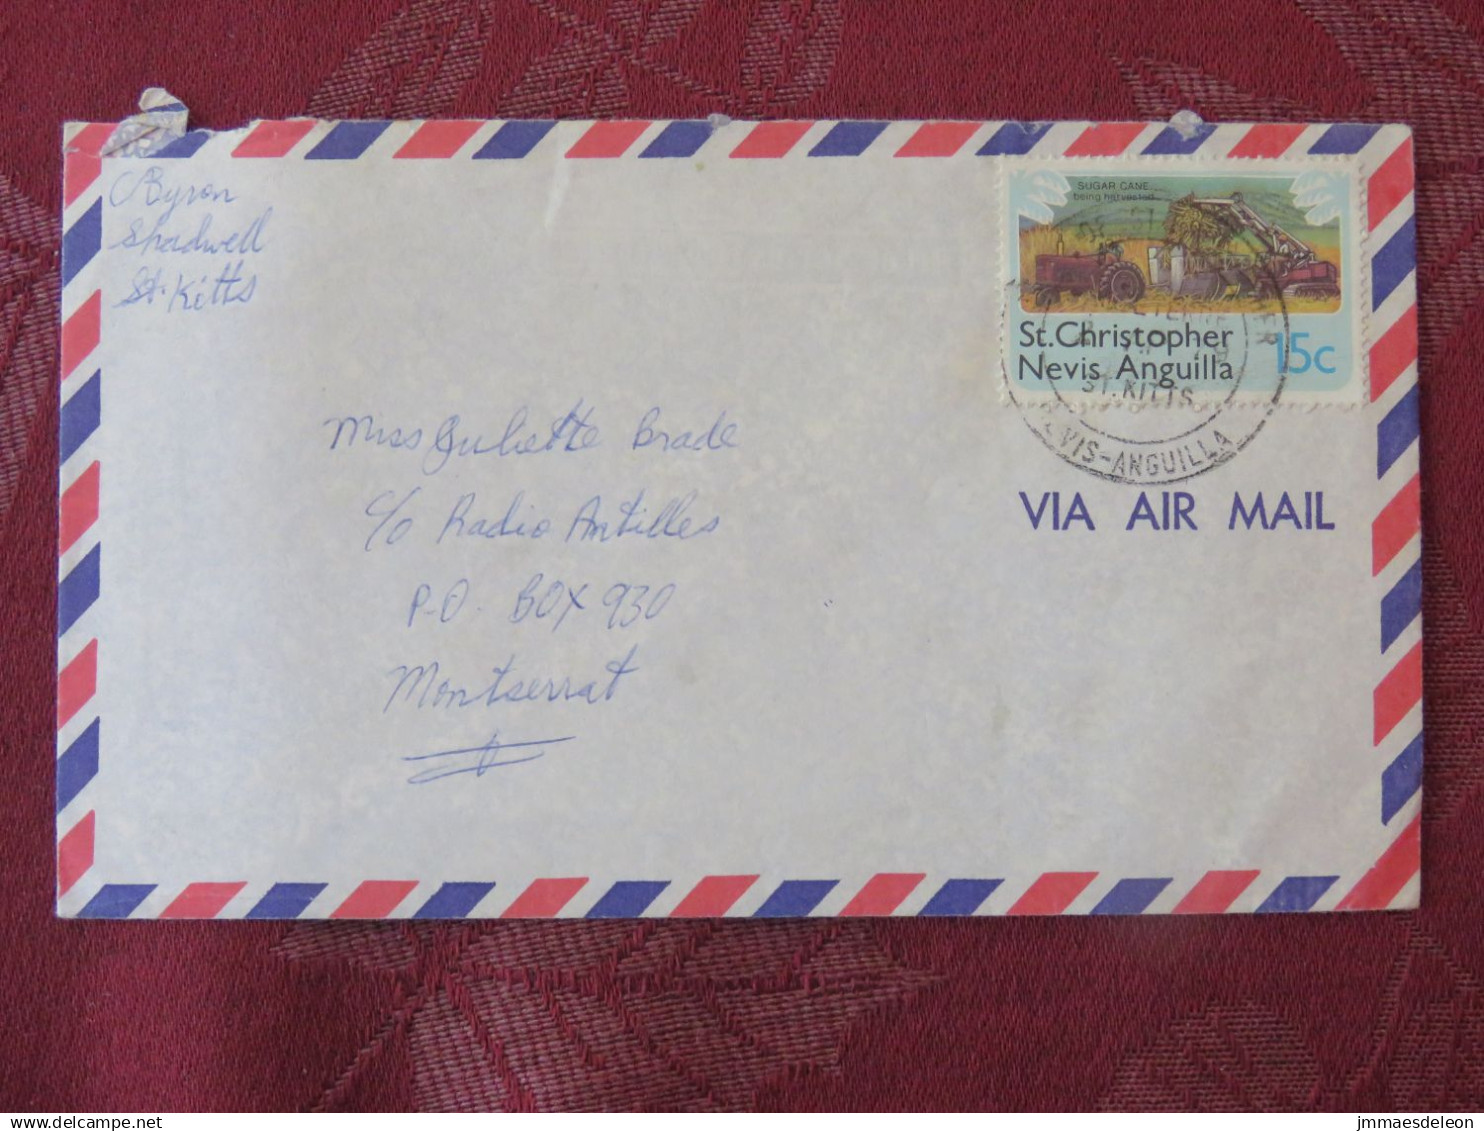 Byron
Shadwell
St. Kitts
SUGAR CANE
being harvested
St. Christopher
Nevis Anguilla 15c
ST. KITTS
VIS-ANGUILLA
VIA AIR MAIL
Miss Juliette Brade
c/o Radio Antilles
P.O. BOX 930
Montserrat
delcampe.net
jmmaesdeleon